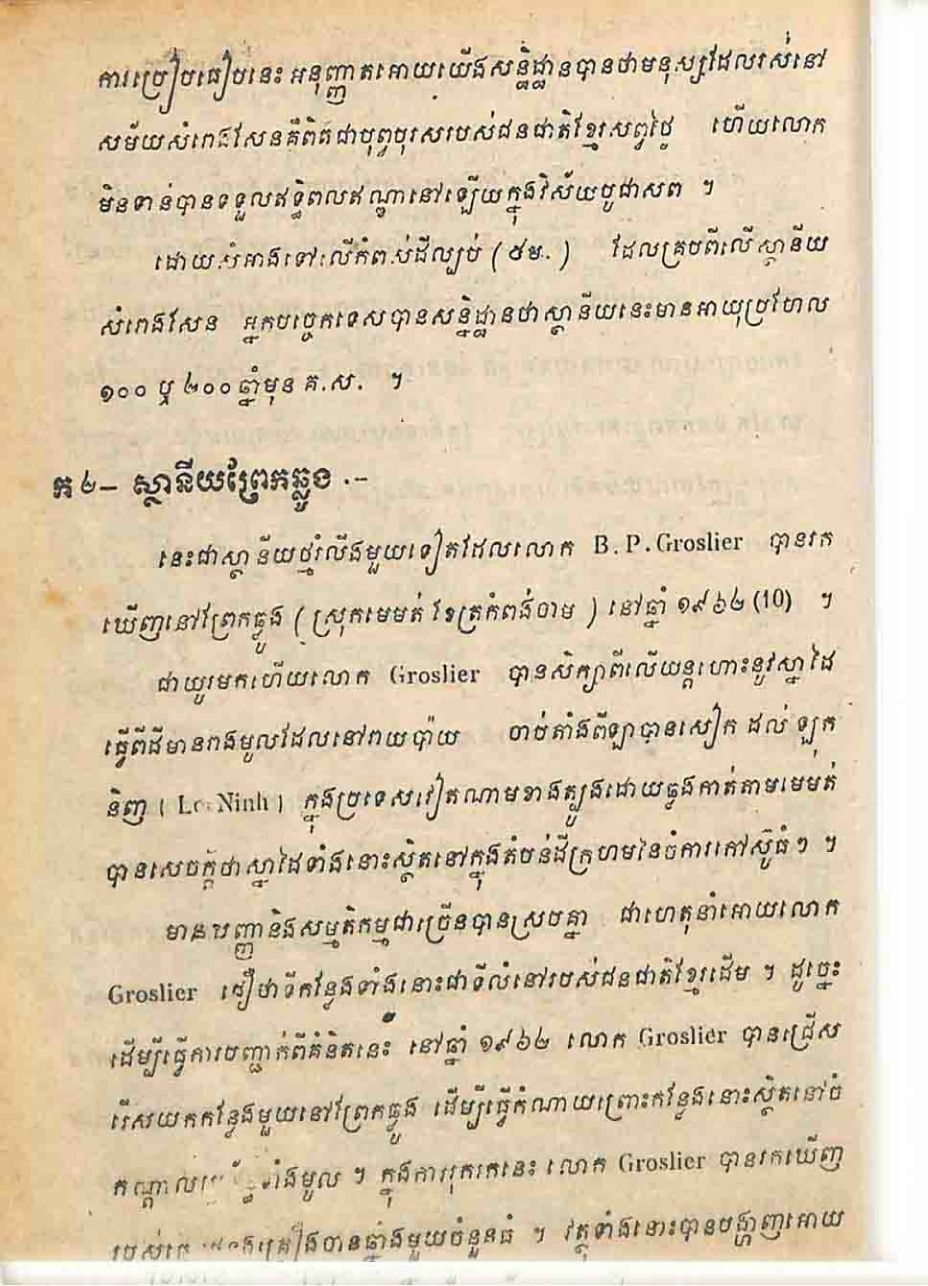 ការប្រៀបធៀបនេះ អនុញ្ញាតអោយយើងសន្និដ្ឋានបានថាមនុស្សដែលរស់នៅ
សម័យសំរោងសែនគឺពិតជាបុព្វបុរសរបស់ជនជាតិខ្មែរសព្វថ្ងៃ ហើយលោក
មិនទាន់បានទទួលឥទ្ធិពលឥណ្ឌានៅឡើយក្នុងវិស័យបូជាសព ។
ដោយសំអាងទៅលើកំពស់ដីល្បប់ ( ៥ម. ) ដែលគ្របពីលើស្ថានីយ
សំរោងសែន អ្នកបច្ចេកទេសបានសន្និដ្ឋានថាស្ថានីយនេះមានអាយុប្រហែល
១០០ ឬ ២០០ ឆ្នាំមុន គ.ស. ។
ក ២- ស្ថានីយព្រែកឆ្លូង .-
នេះជាស្ថានីយថ្មរំលីងមួយទៀតដែលលោក B.P.Groslier បានរក
ឃើញនៅព្រែកឆ្លូង ( ស្រុកមេមត់ ខែត្រកំពង់ចាម ) នៅឆ្នាំ ១៩៦២ (10) ។
ជាយូរមកហើយលោក Groslier បានសិក្សាពីលើយន្តហោះនូវស្នាដៃ
ធ្វើពីដីមានរាងមូលដែលនៅរាយប៉ាយ ចាប់តាំងពីឡាបានសៀក ដល់ ឡុក
និញ ( Loc Ninh ) ក្នុងប្រទេសវៀតណាមខាងត្បូងដោយឆ្លងកាត់តាមមេមត់
បានសេចក្តីថាស្នាដៃទាំងនោះស្ថិតនៅក្នុងតំបន់ដីក្រហមនៃចំការកៅស៊ូធំៗ ។
មានបញ្ញានិងសម្មតិកម្មជាច្រើនបានស្របគ្នា ជាហេតុនាំអោយលោក
Groslier ជឿថាទីកន្លែងទាំងនោះជាទីលំនៅរបស់ជនជាតិខ្មែរដើម ។ ដូច្នេះ
ដើម្បីធ្វើការបញ្ជាក់ពីគំនិតនេះ នៅឆ្នាំ ១៩៦២ លោក Groslier បានជ្រើស
រើសយកកន្លែងមួយនៅព្រែកឆ្លូង ដើម្បីធ្វើកំណាយព្រោះកន្លែងនោះស្ថិតនៅចំ
កណ្តាល ទាំងមូល ។ ក្នុងការរុករកនេះ លោក Groslier បានរកឃើញ
របស់ គ្រឿងចានឆ្នាំងមួយចំនួនធំ ។ វត្ថុទាំងនោះបានបង្ហាញអោយ